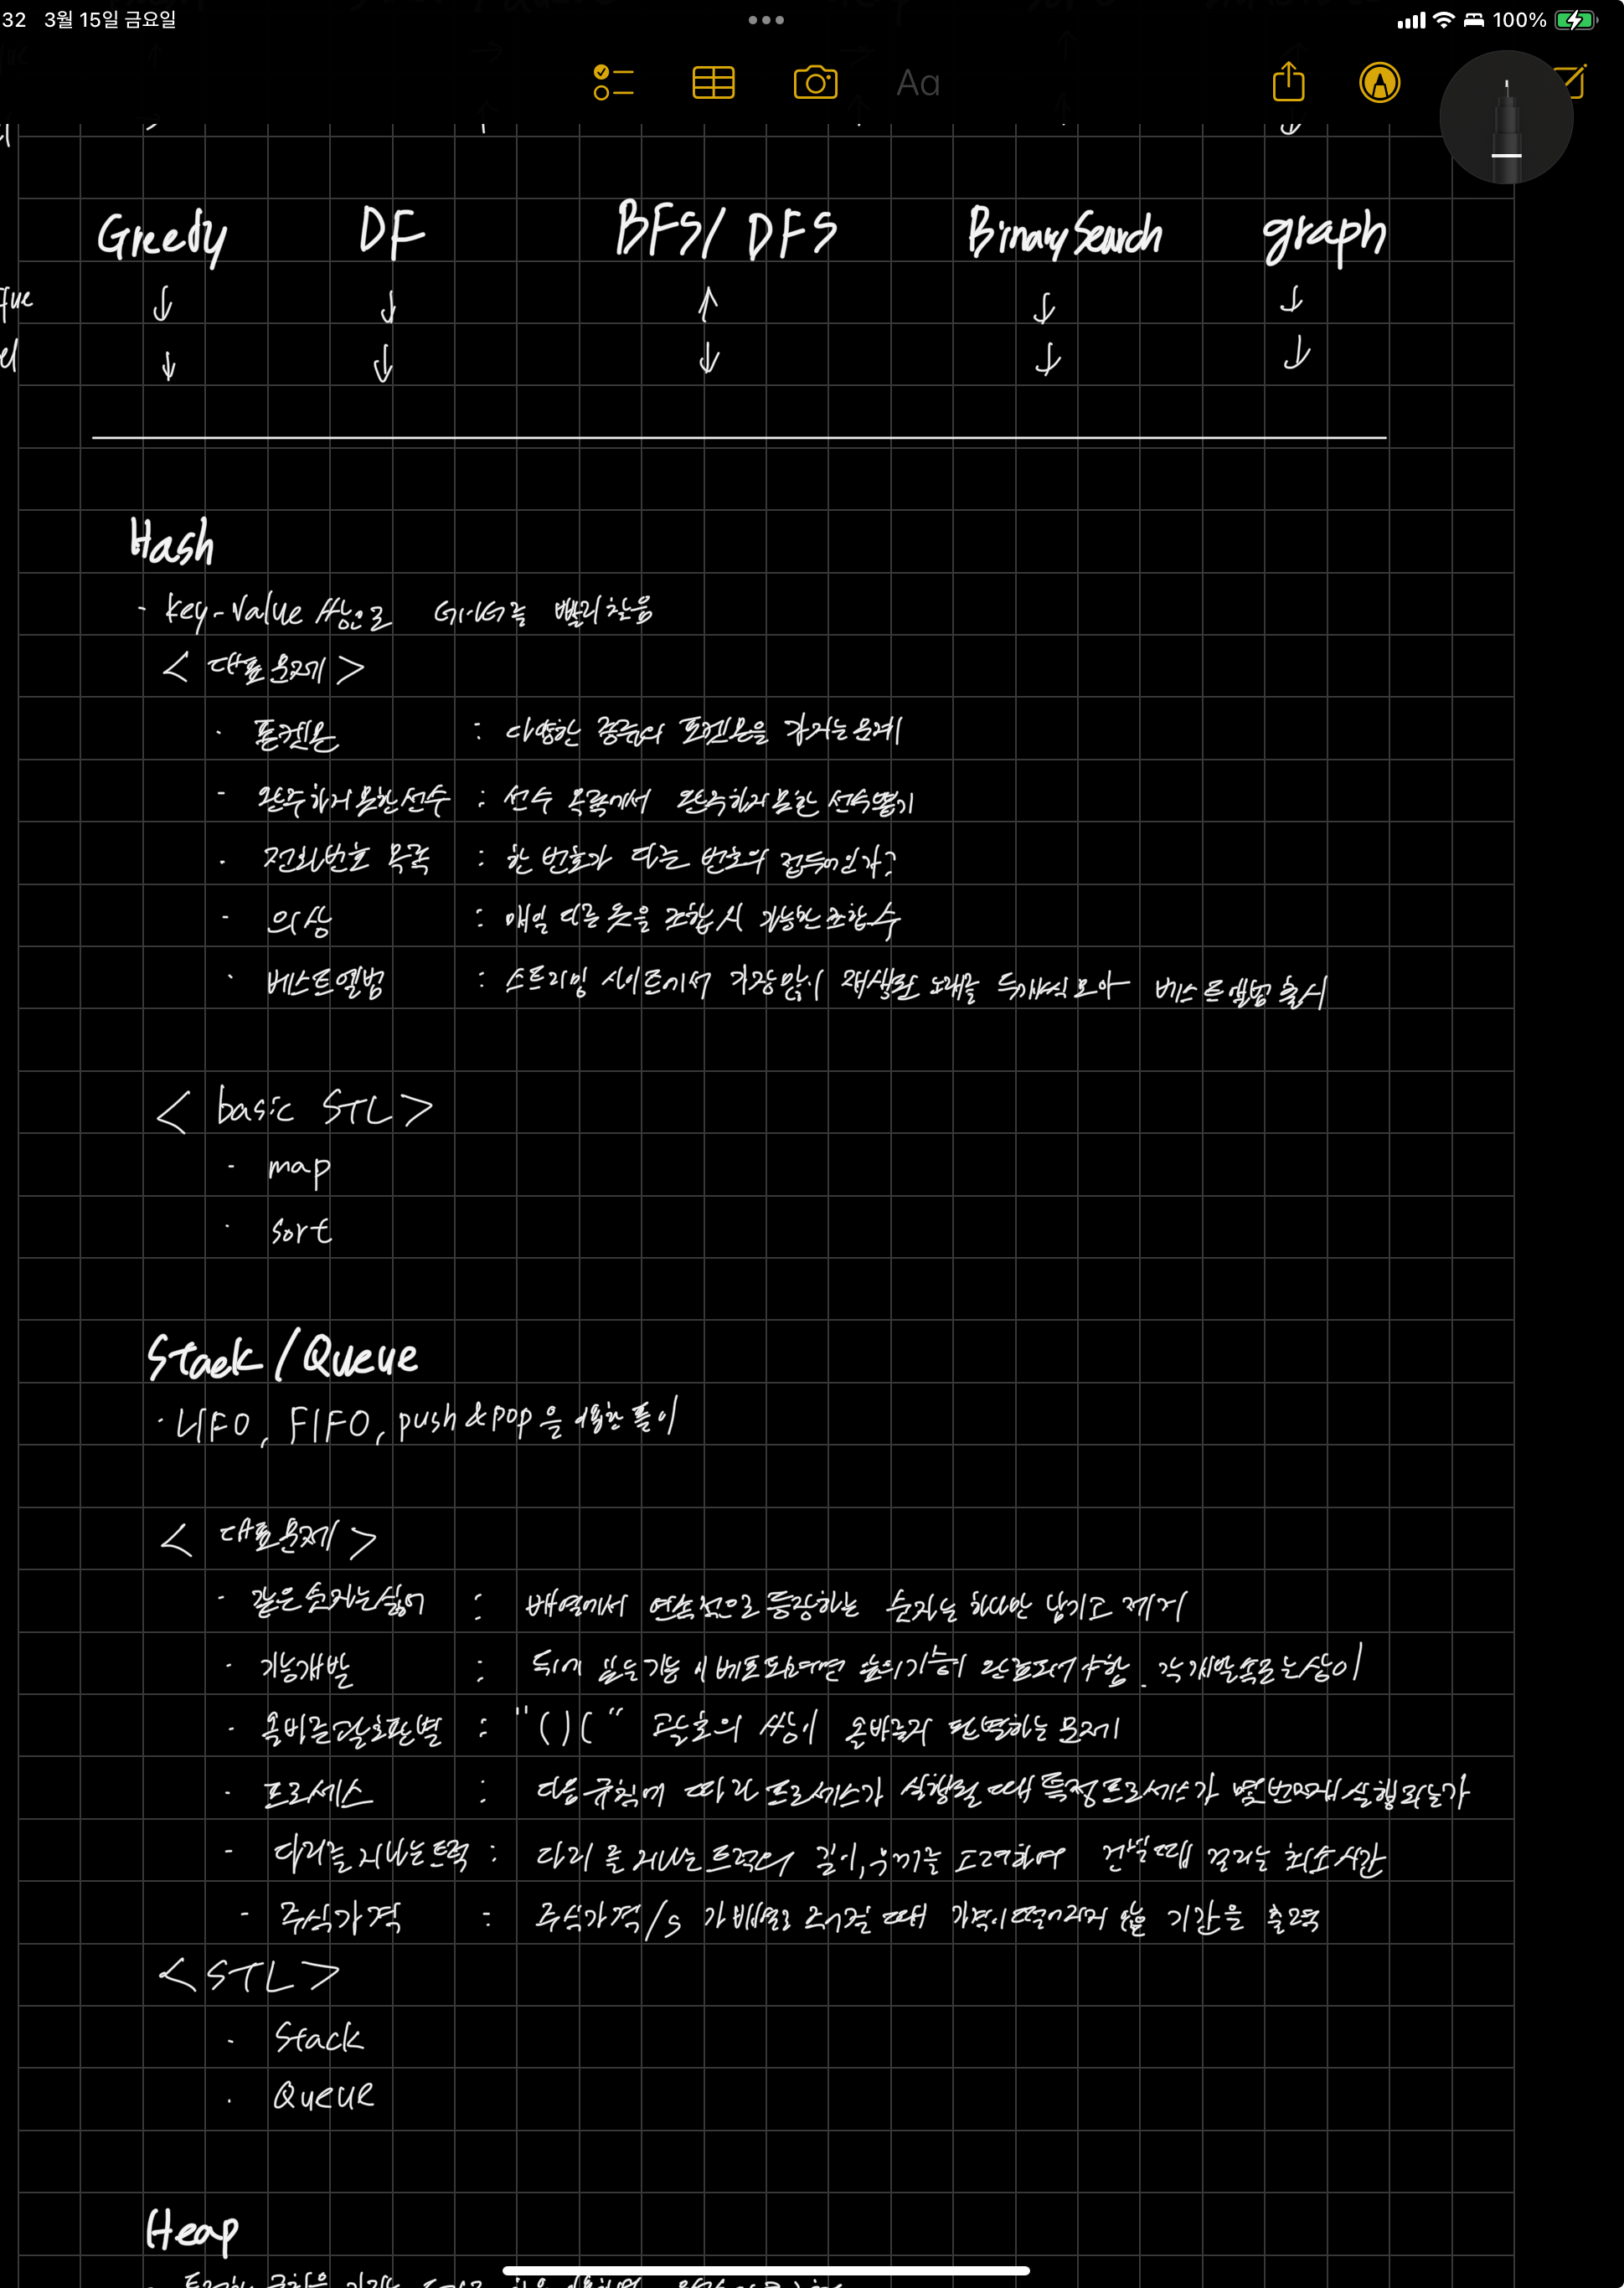 32 3월 15일 금요일 100%
Aa
Greedy DF BFS/ DFS BinarySearch graph
↓ ↓ ↑ ↓ ↓
↓ ↓ ↓ ↓ ↓
Hash
· key-value 쌍으로 데이터를 빨리 찾음
< 대표문제 >
· 폰켓몬 : 다양한 종류의 포켓몬을 가지는 문제
· 완주하지 못한 선수 : 선수 목록에서 완주하지 못한 선수 뽑기
· 전화번호 목록 : 한 번호가 다른 번호의 접두어인가?
· 의상 : 매일 다른 옷을 조합 시 가능한 조합 수
· 베스트엘범 : 스트리밍 사이트에서 가장 많이 재생된 노래를 두개씩 모아 베스트 엘범 출시
< basic STL >
· map
· sort
Stack / Queue
· LIFO, FIFO, push & pop을 이용한 풀이
< 대표문제 >
· 같은 숫자는 싫어 : 배열에서 연속적으로 등장하는 숫자는 하나만 남기고 제거
· 기능개발 : 뒤에 있는 기능이 배포되려면 앞의 기능이 완료되어야함. 각 개발속도는 상이
· 올바른 괄호판별 : "()(" 괄호의 쌍이 올바른지 판별하는 문제
· 프로세스 : 다음 규칙에 따라 프로세스가 실행될 때 특정 프로세스가 몇 번째에 실행되는가
· 다리를 지나는 트럭 : 다리를 지나는 트럭의 길이, 무게를 고려하여 건널 때 걸리는 최소시간
· 주식가격 : 주식가격/s 가 배열로 주어질 때 가격이 떨어지지 않은 기간을 출력
< STL >
· Stack
· Queue
Heap